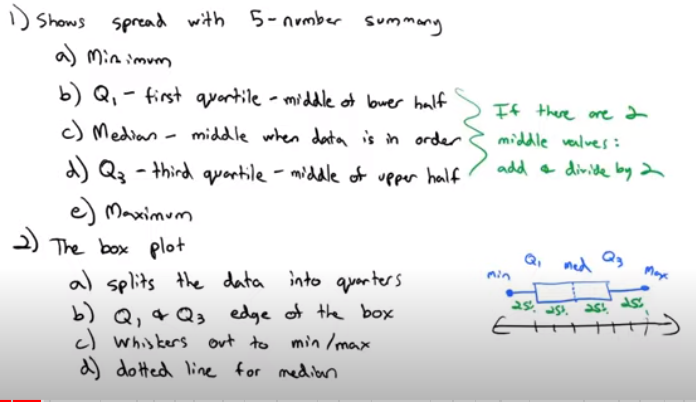 1) Shows spread with 5-number summary
a) Minimum
b) Q1 - first quartile - middle of lower half
c) Median - middle when data is in order
d) Q3 - third quartile - middle of upper half
e) Maximum
If there are 2
middle values:
add & divide by 2
2) The box plot
a) splits the data into quarters
b) Q1 & Q3 edge of the box
c) Whiskers out to min/max
d) dotted line for median
min Q1 med Q3 Max
25% 25% 25% 25%